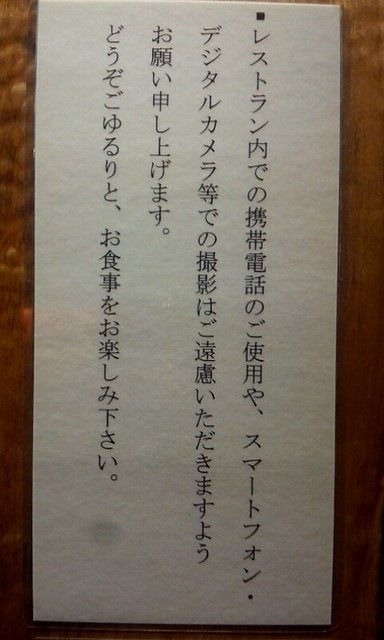 ■レストラン内での携帯電話のご使用や、スマートフォン・
デジタルカメラ等での撮影はご遠慮いただきますよう
お願い申し上げます。
どうぞごゆるりと、お食事をお楽しみ下さい。